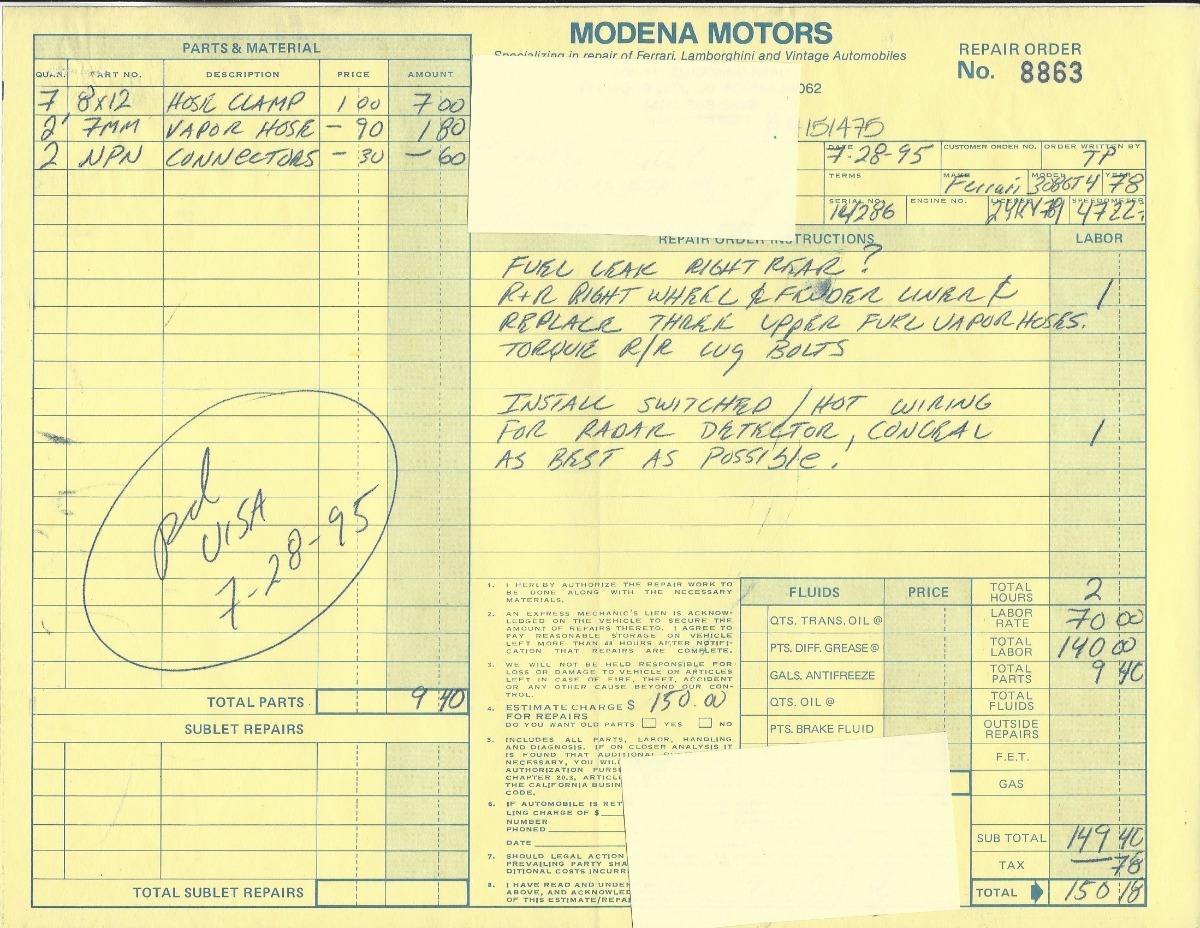 MODENA MOTORS
Specializing in repair of Ferrari, Lamborghini and Vintage Automobiles
REPAIR ORDER
No. 8863
062
151475
PARTS & MATERIAL
QUAN. PART NO. DESCRIPTION PRICE AMOUNT
7 8x12 HOSE CLAMP 1 00 7 00
2 7MM VAPOR HOSE — 90 1 80
2 NPN CONNECTORS — 30 — 60
DATE 7-28-95 CUSTOMER ORDER NO. ORDER WRITTEN BY TP
TERMS MAKE Ferrari MODEL 308GT4 YEAR 78
SERIAL NO. 14286 ENGINE NO. LICENSE SPEEDOMETER
REPAIR ORDER INSTRUCTIONS LABOR
FUEL LEAK RIGHT REAR?
R+R RIGHT WHEEL & FENDER LINER & 1
REPLACE THREE UPPER FUEL VAPOR HOSES.
TORQUE R/R LUG BOLTS
INSTALL SWITCHED / HOT WIRING
FOR RADAR DETECTOR, CONCEAL 1
AS BEST AS POSSIBLE.
pd
VISA
7-28-95
TOTAL PARTS 9 40
SUBLET REPAIRS
TOTAL SUBLET REPAIRS
1. I HEREBY AUTHORIZE THE REPAIR WORK TO
BE DONE ALONG WITH THE NECESSARY
MATERIALS.
2. AN EXPRESS MECHANIC'S LIEN IS ACKNOW-
LEDGED ON THE VEHICLE TO SECURE THE
AMOUNT OF REPAIRS THERETO. I AGREE TO
PAY REASONABLE STORAGE ON VEHICLE
LEFT MORE THAN 48 HOURS AFTER NOTIFI-
CATION THAT REPAIRS ARE COMPLETE.
3. WE WILL NOT BE HELD RESPONSIBLE FOR
LOSS OR DAMAGE TO VEHICLE OR ARTICLES
LEFT IN CASE OF FIRE, THEFT, ACCIDENT
OR ANY OTHER CAUSE BEYOND OUR CON-
TROL.
4. ESTIMATE CHARGE $ 150.00
FOR REPAIRS
DO YOU WANT OLD PARTS YES NO
5. INCLUDES ALL PARTS, LABOR, HANDLING
AND DIAGNOSIS. IF ON CLOSER ANALYSIS IT
IS FOUND THAT ADDITIONAL
NECESSARY, YOU WILL
AUTHORIZATION PURS
CHAPTER 20.3, ARTICL
THE CALIFORNIA BUSIN
CODE.
6. IF AUTOMOBILE IS RET
LING CHARGE OF $
NUMBER
PHONED
DATE
7. SHOULD LEGAL ACTION
PREVAILING PARTY SHA
DITIONAL COSTS INCURR
8. I HAVE READ AND UNDER
ABOVE, AND ACKNOWLED
OF THIS ESTIMATE/REPAI
FLUIDS PRICE
QTS. TRANS. OIL @
PTS. DIFF. GREASE @
GALS. ANTIFREEZE
QTS. OIL @
PTS. BRAKE FLUID
TOTAL HOURS 2
LABOR RATE 70 00
TOTAL LABOR 140 00
TOTAL PARTS 9 40
TOTAL FLUIDS
OUTSIDE REPAIRS
F.E.T.
GAS
SUB TOTAL 149 40
TAX — 78
TOTAL 150 18